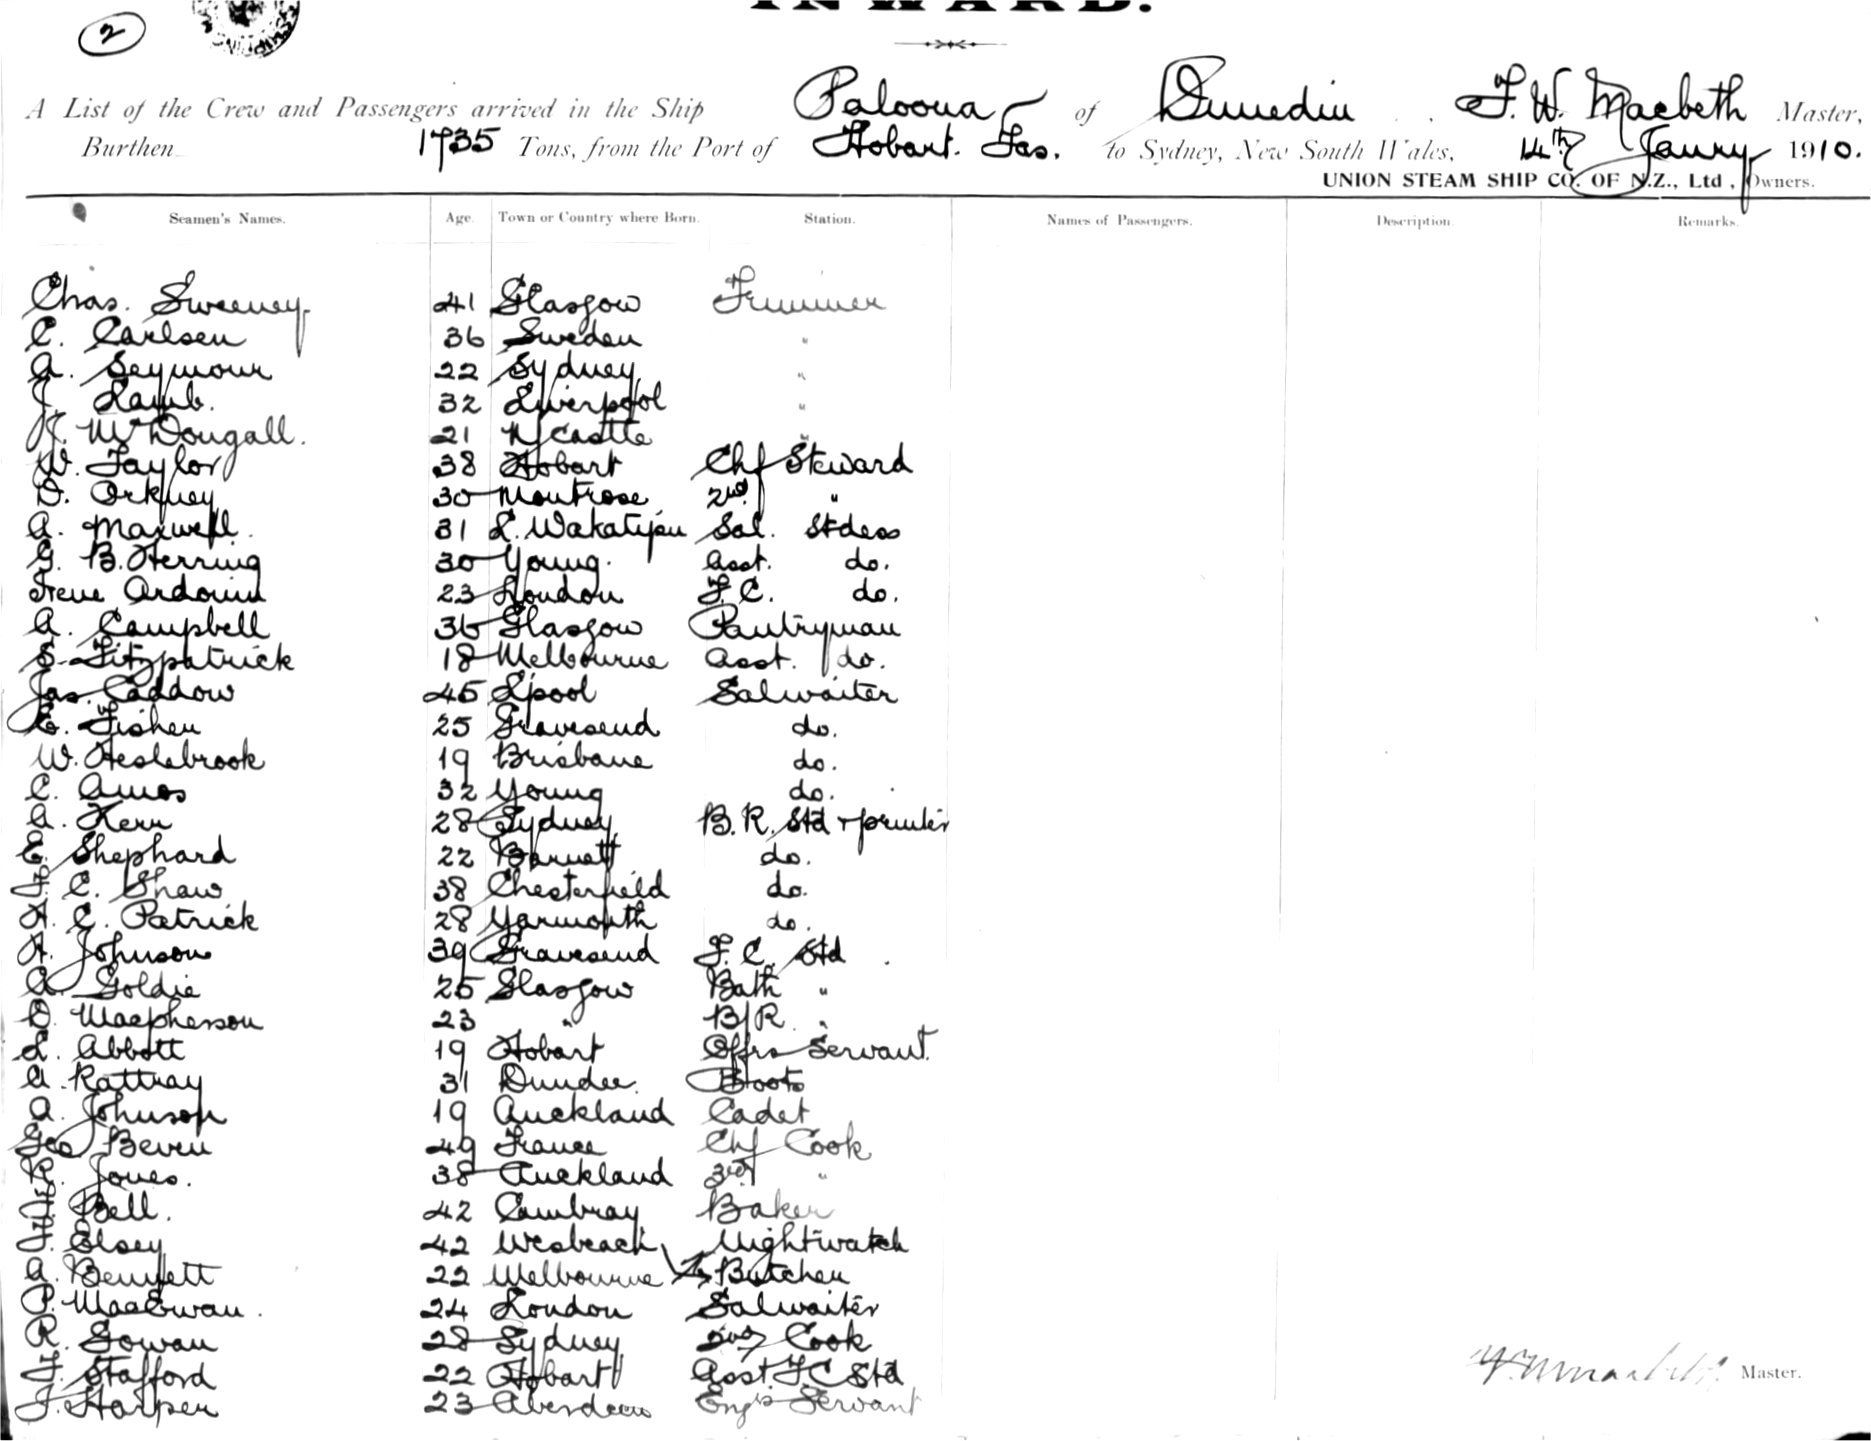 2
INWARD.
A List of the Crew and Passengers arrived in the Ship Paloona of Dunedin F. W. Macbeth Master,
Burthen 1735 Tons, from the Port of Hobart. Tas. to Sydney, New South Wales, 14th Janry 1910.
UNION STEAM SHIP CO. OF N.Z., Ltd, Owners.
Seamen's Names. Age. Town or Country where Born. Station. Names of Passengers. Description. Remarks.
Chas. Sweeney 41 Glasgow Trimmer
C. Carlsen 36 Sweden "
A. Seymour 22 Sydney "
J. Lamb. 32 Liverpool "
McDougall. 21 N/Castle "
W. Taylor 38 Hobart Chf Steward
D. Orkney 30 Montrose 2nd "
A. Maxwell. 31 L. Wakatipu Sal. Stdess
G. B. Herring 30 Young. Asst. do.
Irene Ardouin 23 London F. C. do.
A. Campbell 36 Glasgow Pantryman
S. Fitzpatrick 18 Melbourne Asst. do.
Jas Caddow 45 L'pool Salwaiter
E. Fisher 25 Gravesend do.
W. Heslebrook 19 Brisbane do.
C. Amos 32 Young do.
A. Kerr 28 Sydney B. R. Std + printer
E. Shephard 22 Barnett do.
F. C. Shaw 38 Chesterfield do.
H. C. Patrick 28 Yarmouth do.
H. Johnson 39 Gravesend F. C. Std
A. Goldie 25 Glasgow Bath "
D. Macpherson 23 " B/R "
L. Abbott 19 Hobart Offrs Servant.
A. Rattray 31 Dundee Boots
A. Johnson 19 Auckland Cadet
Geo Beven 49 France Chf Cook
R. Jones. 38 Auckland 3rd "
J. Bell. 42 Cambray Baker
F. Elsey 42 Wesbeach Nightwatch
A. Bennett 22 Melbourne Butcher
P. MacEwan. 24 London Salwaiter
R. Gowan 28 Sydney 2nd Cook
F. Stafford 22 Hobart Asst F C Std
J. Harper 23 Aberdeen Engrs Servant
Master.